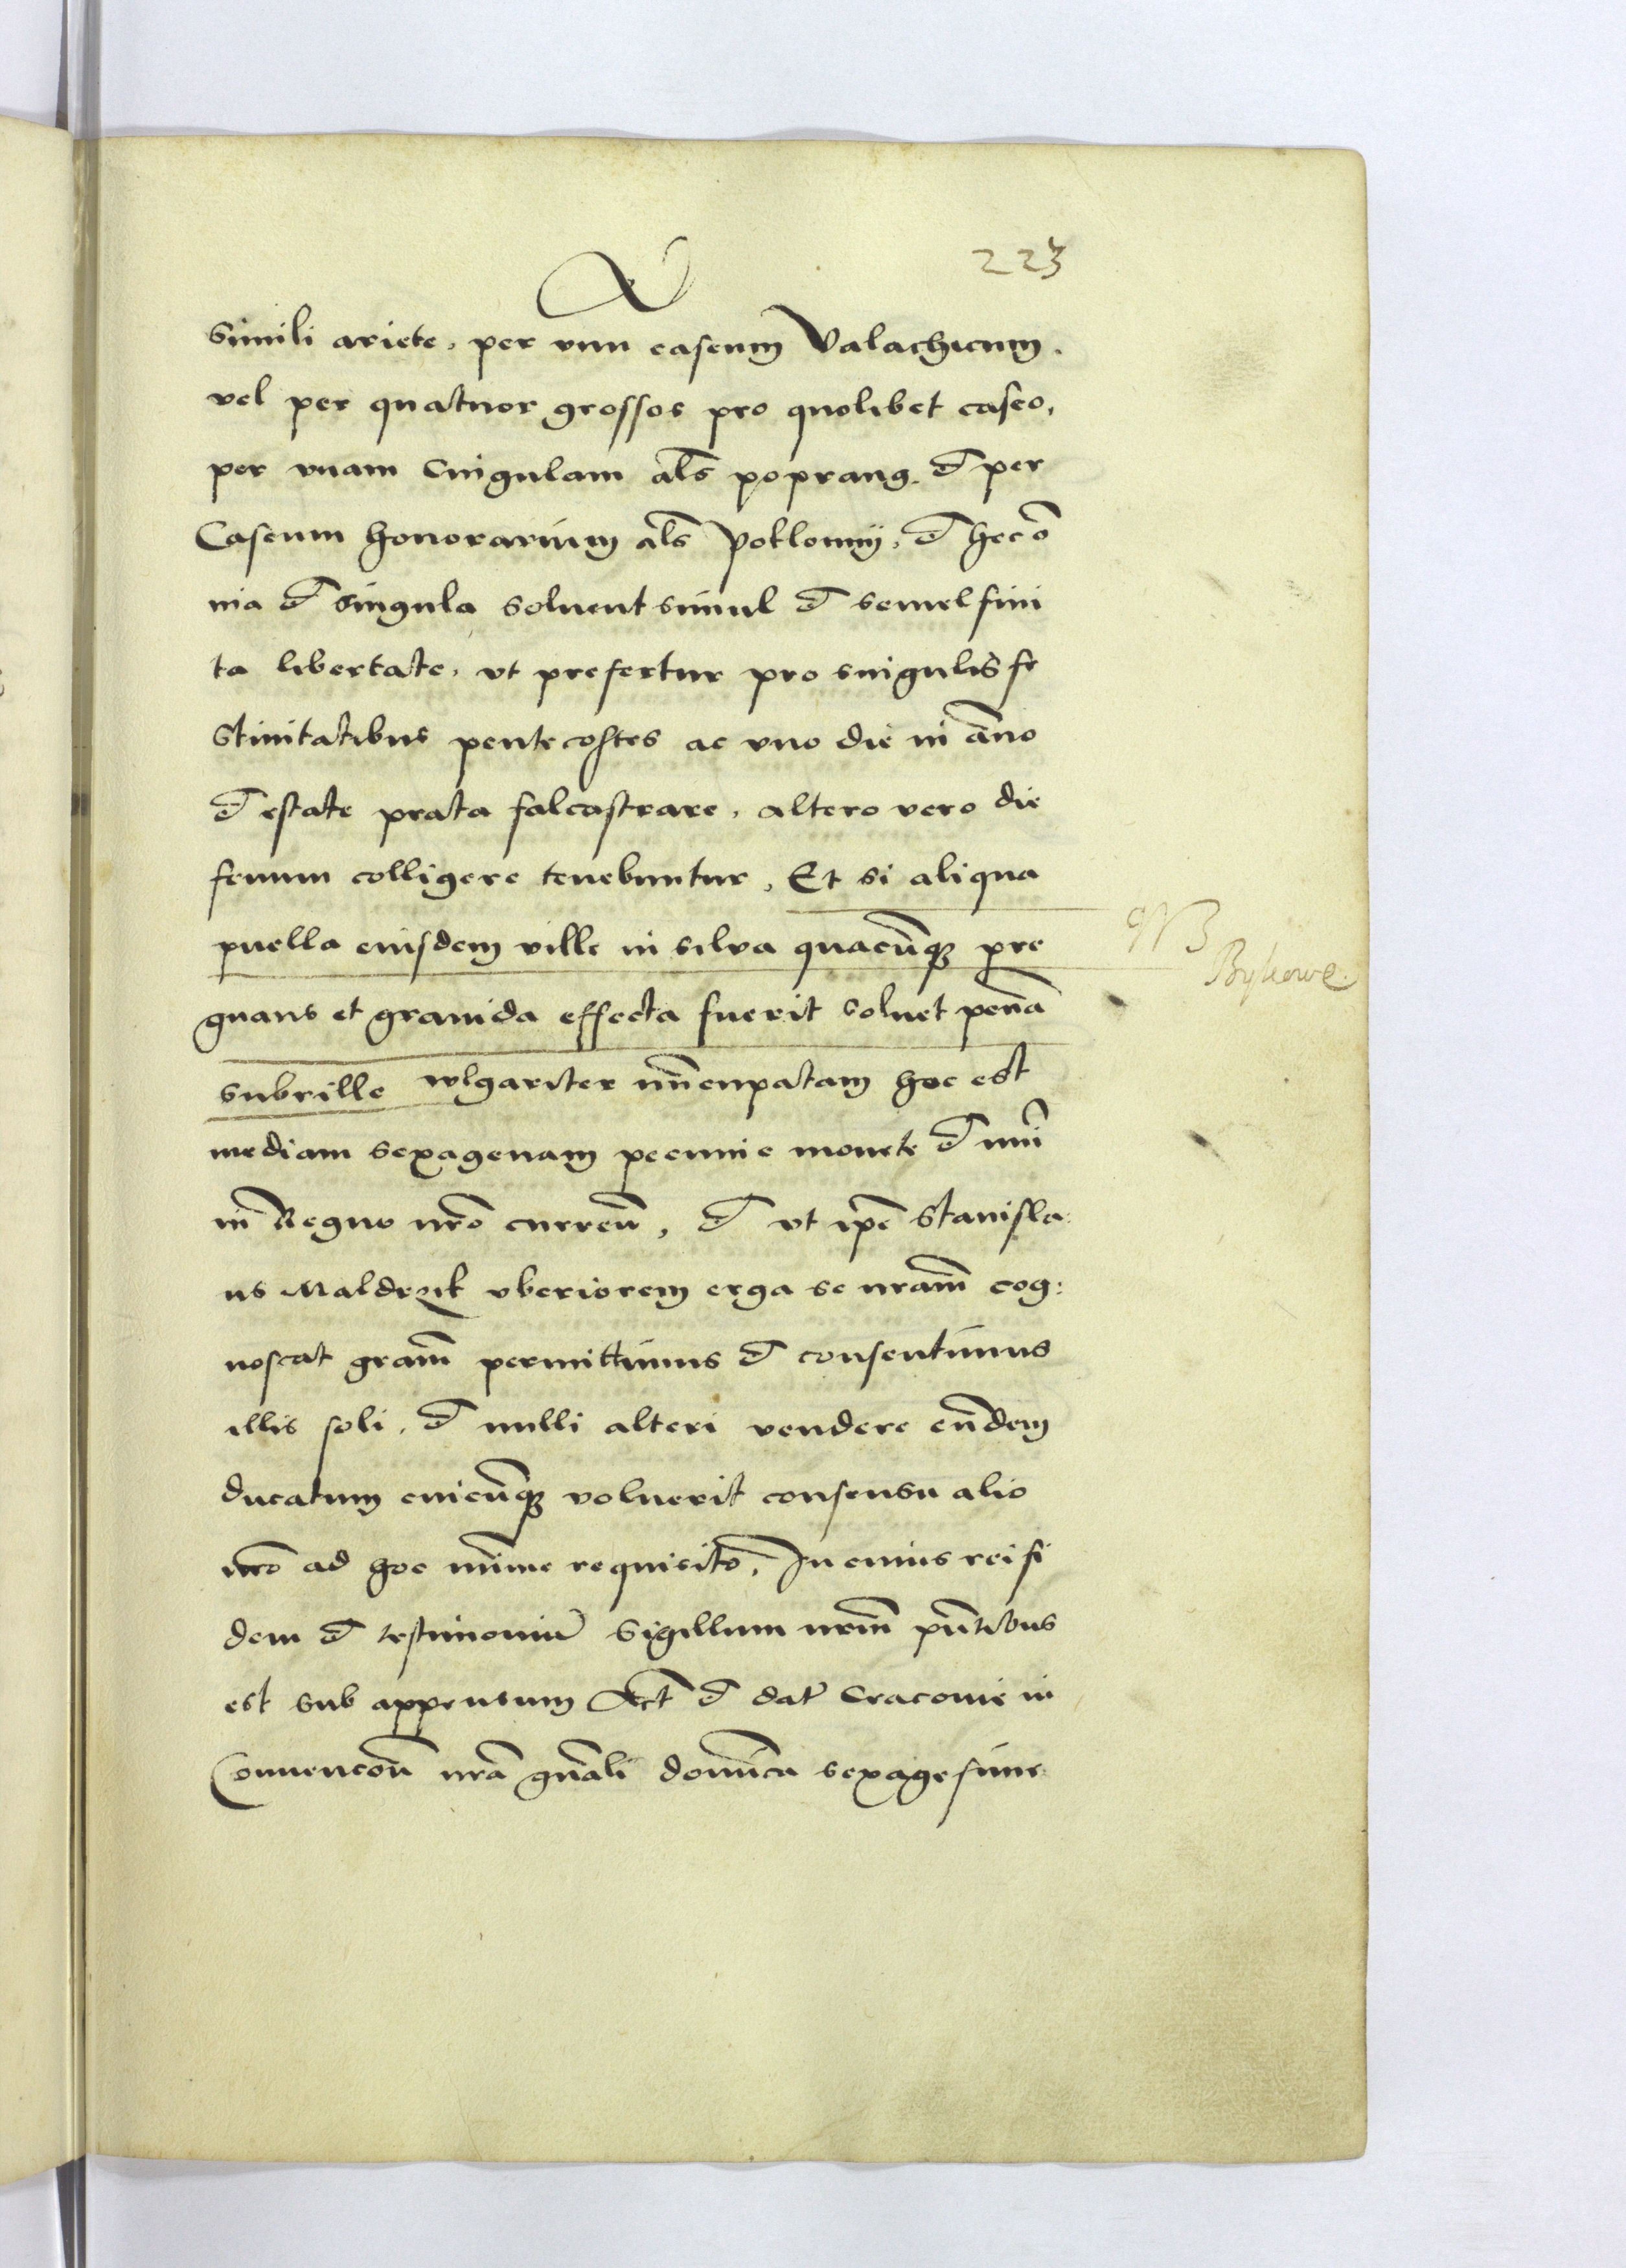 223
simili ariete, per vnu caseum Valachicum.
vel per quatuor grossos pro quolibet caseo,
per vnam cingulam als poprang. et per
Caseum honorarium als Poklonny, et hec o
nia et singula soluent simul et semel fini
ta libertate, vt prefertur pro singulis fe
stiuitatibus pentecostes ac vno die in āno
et estate prata falcastrare, altero vero die
fenum colligere tenebuntur, Et si aliqua
puella eiusdem ville in silva quacūqꝫ pre
gnans et grauida effecta fuerit soluet penā
subville wlgariter hoc est
mediam sexagenam pecunie monete et nūi
in Regno nr̄o curren̄, et vt ip̄e Stanisla:
us Maldrzik vberiorem erga se nr̄am cog:
noscat gr̄am permittimus et consentimus
illis soli, et nulli alteri vendere eūdem
ducatum cuicūqꝫ voluerit consensu alio
nr̄o ad hoc mīme requisito, In cuius rei fi
dem et testimoniū Sigillum nr̄m pn̄tibus
est sub appensum Act et dat Cracouie in
Conuencōn nr̄a gn̄ali domīca sexagesime
NB
Bykowe.